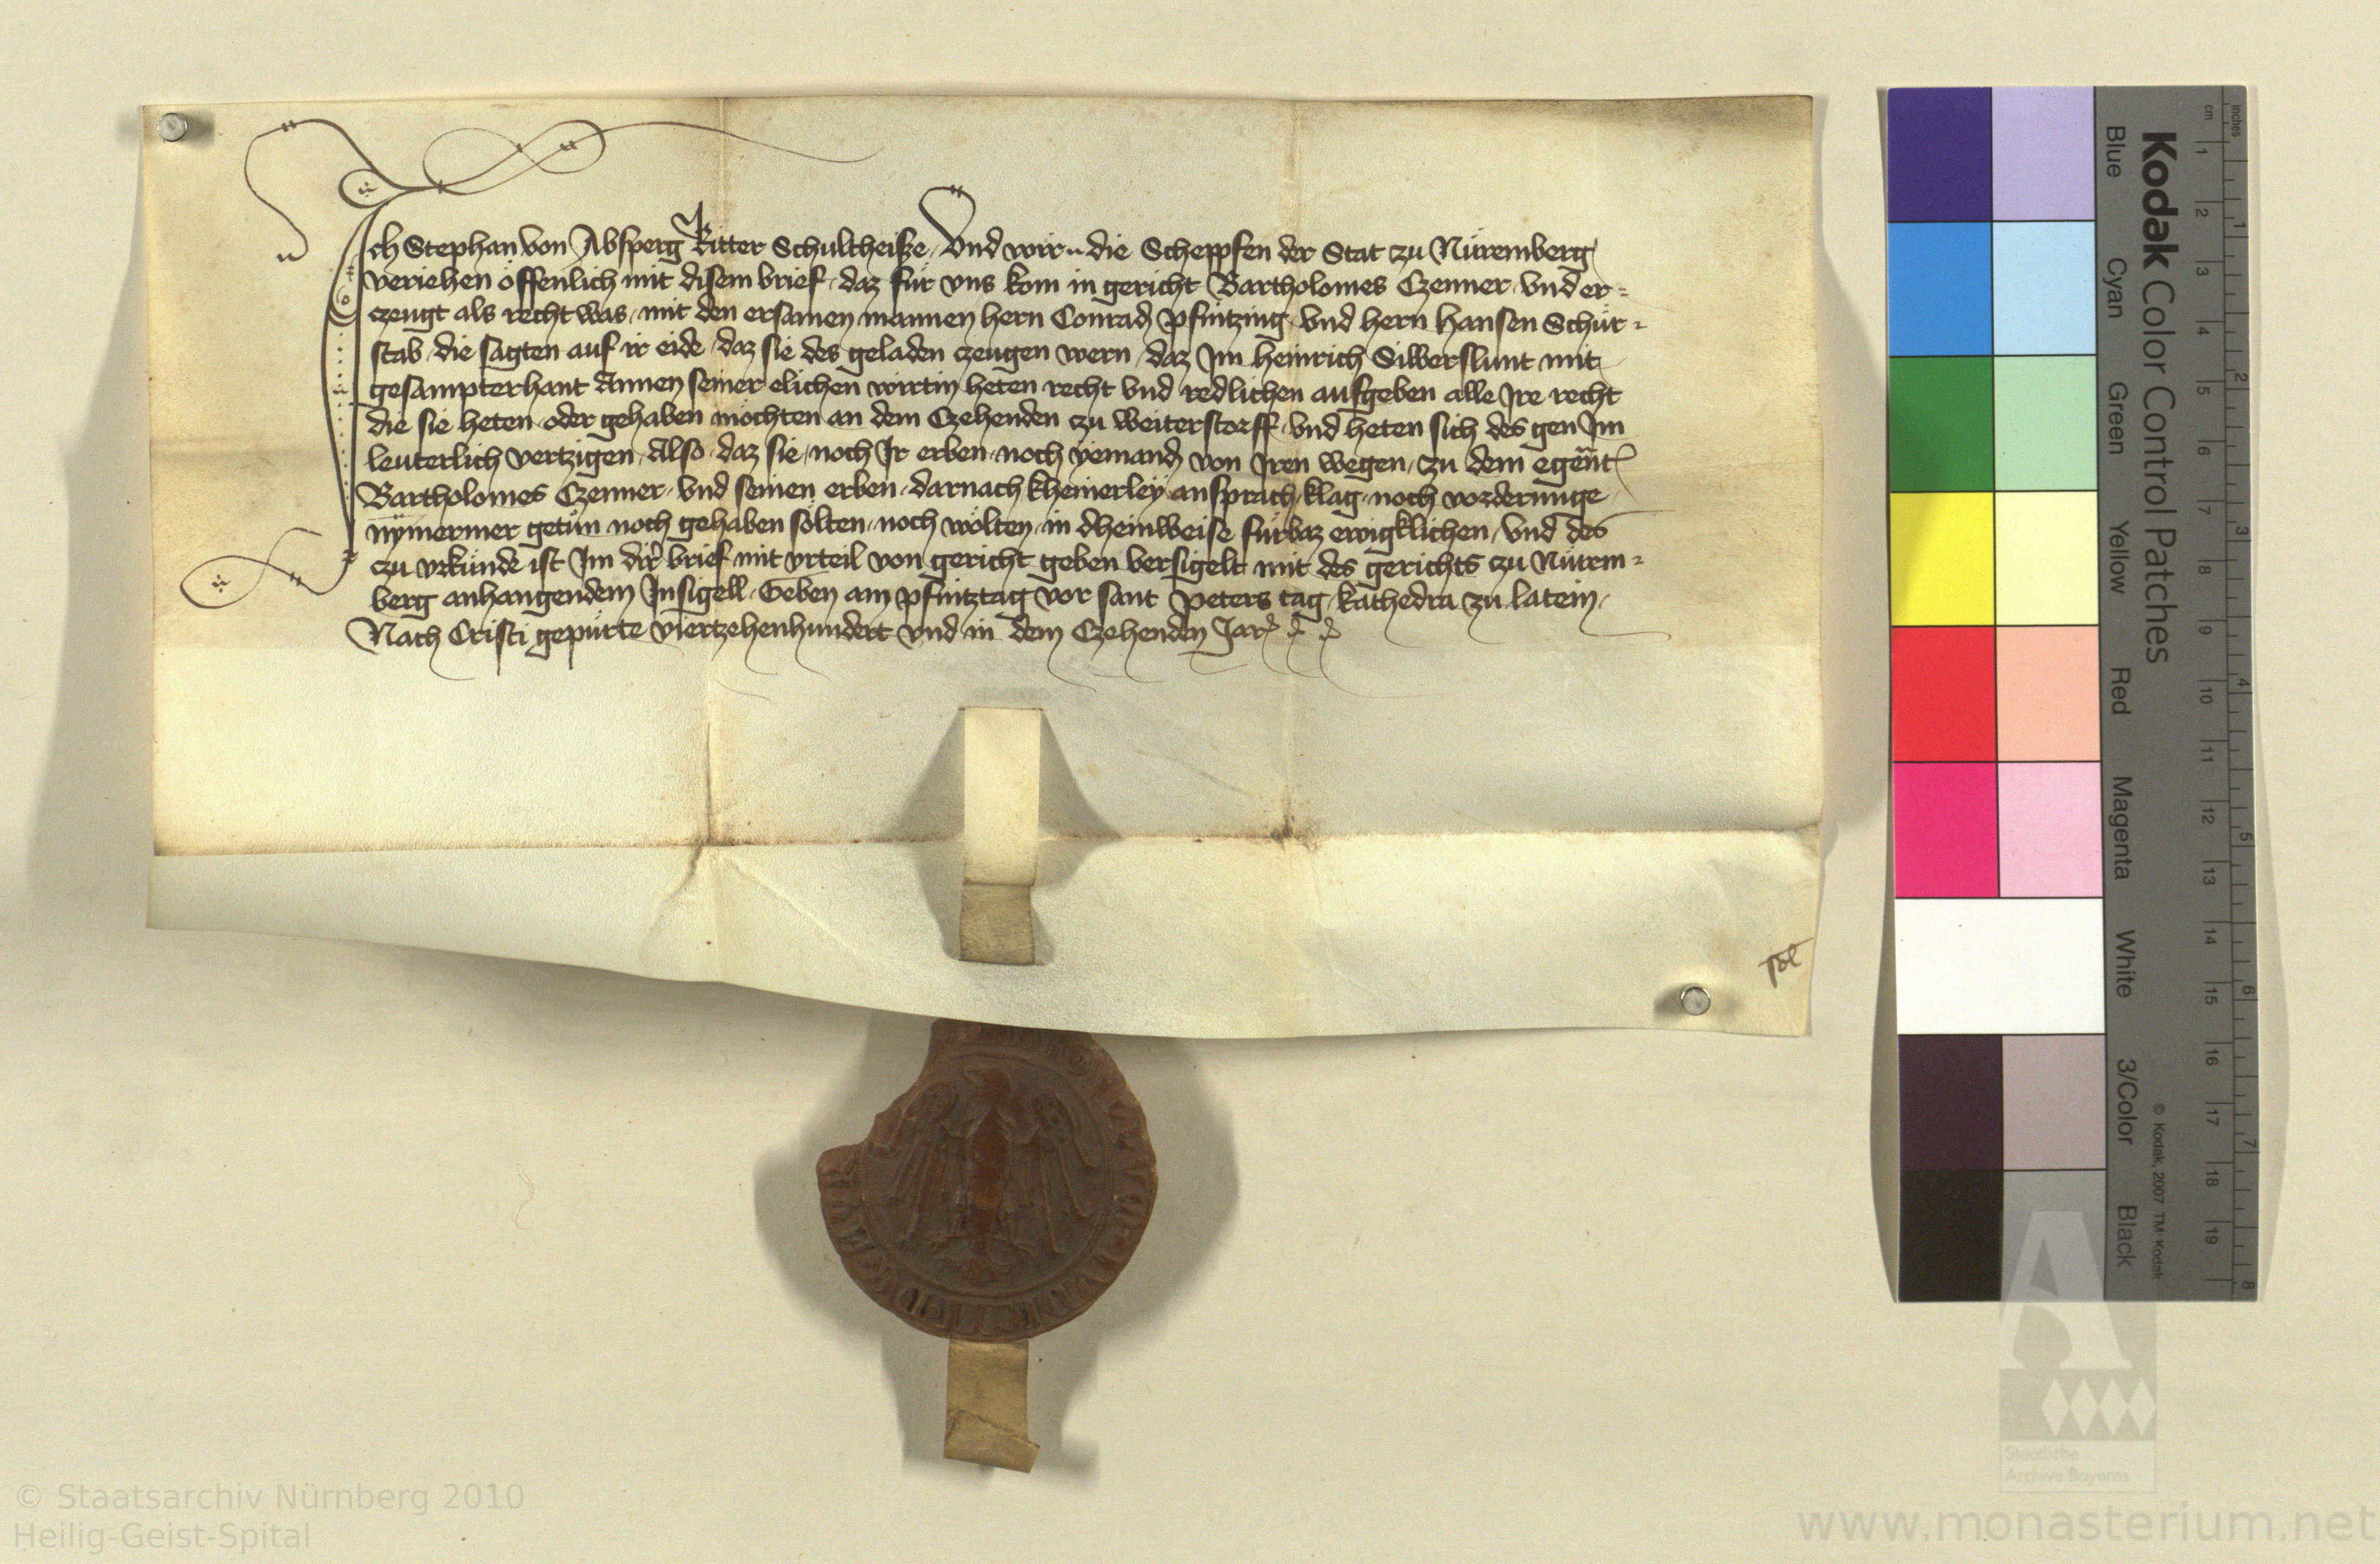 Ich Stephan von Absperg Ritter Schultheisze, Vnd wir die Scheppfen der Stat zu Nüremberg
veriehen offenlich mit disem brief, daz für vns kom in gericht Bartholomes Czenner, vnd er=
czeugt als recht was, mit den ersamen mannen hern Conrad Pfintzing, vnd hern Hansen Schür=
stab, die sagten auf ir eide, daz sie des geladen czeugen wern, daz Im Heinrich Silberslunt mit
gesampterhant Annen seiner elichen wirtin heten recht vnd redlichen aufgeben alle Ire recht
die sie heten oder gehaben möchten an dem Czehenden zu Weiterstorff, vnd heten sich des gen Im
leuterlich vertzigen, Also, daz sie, noch Ir erben, noch yemand von Iren wegen, zu dem egent
Bartholomes Czenner, vnd seinen erben, darnach kheinerley ansprach, klag, noch vorderunge
nymermer getün noch gehaben sölten, noch wölten, in dheinweise fürbaz ewigklichen, vnd des
zu vrkünde ist Im dir brief mit vrteil von gericht geben versigelt mit des gerichts zu Nürem=
berg anhangendem Insigell, Geben am pfintztag vor sant Peters tag, kathedra zu latein,
Nach Cristi gepürte viertzehenhundert vnd in dem Czehenden Jar
Kodak Color Control Patches
Blue Cyan Green Yellow Red Magenta White 3/Color Black
cm 1 2 3 4 5 6 7 8 9 10 11 12 13 14 15 16 17 18 19
inches 1 2 3 4 5 6 7 8
© Kodak, 2007 TM: Kodak
Staatliche
Archive Bayerns
© Staatsarchiv Nürnberg 2010
Heilig-Geist-Spital
www.monasterium.net